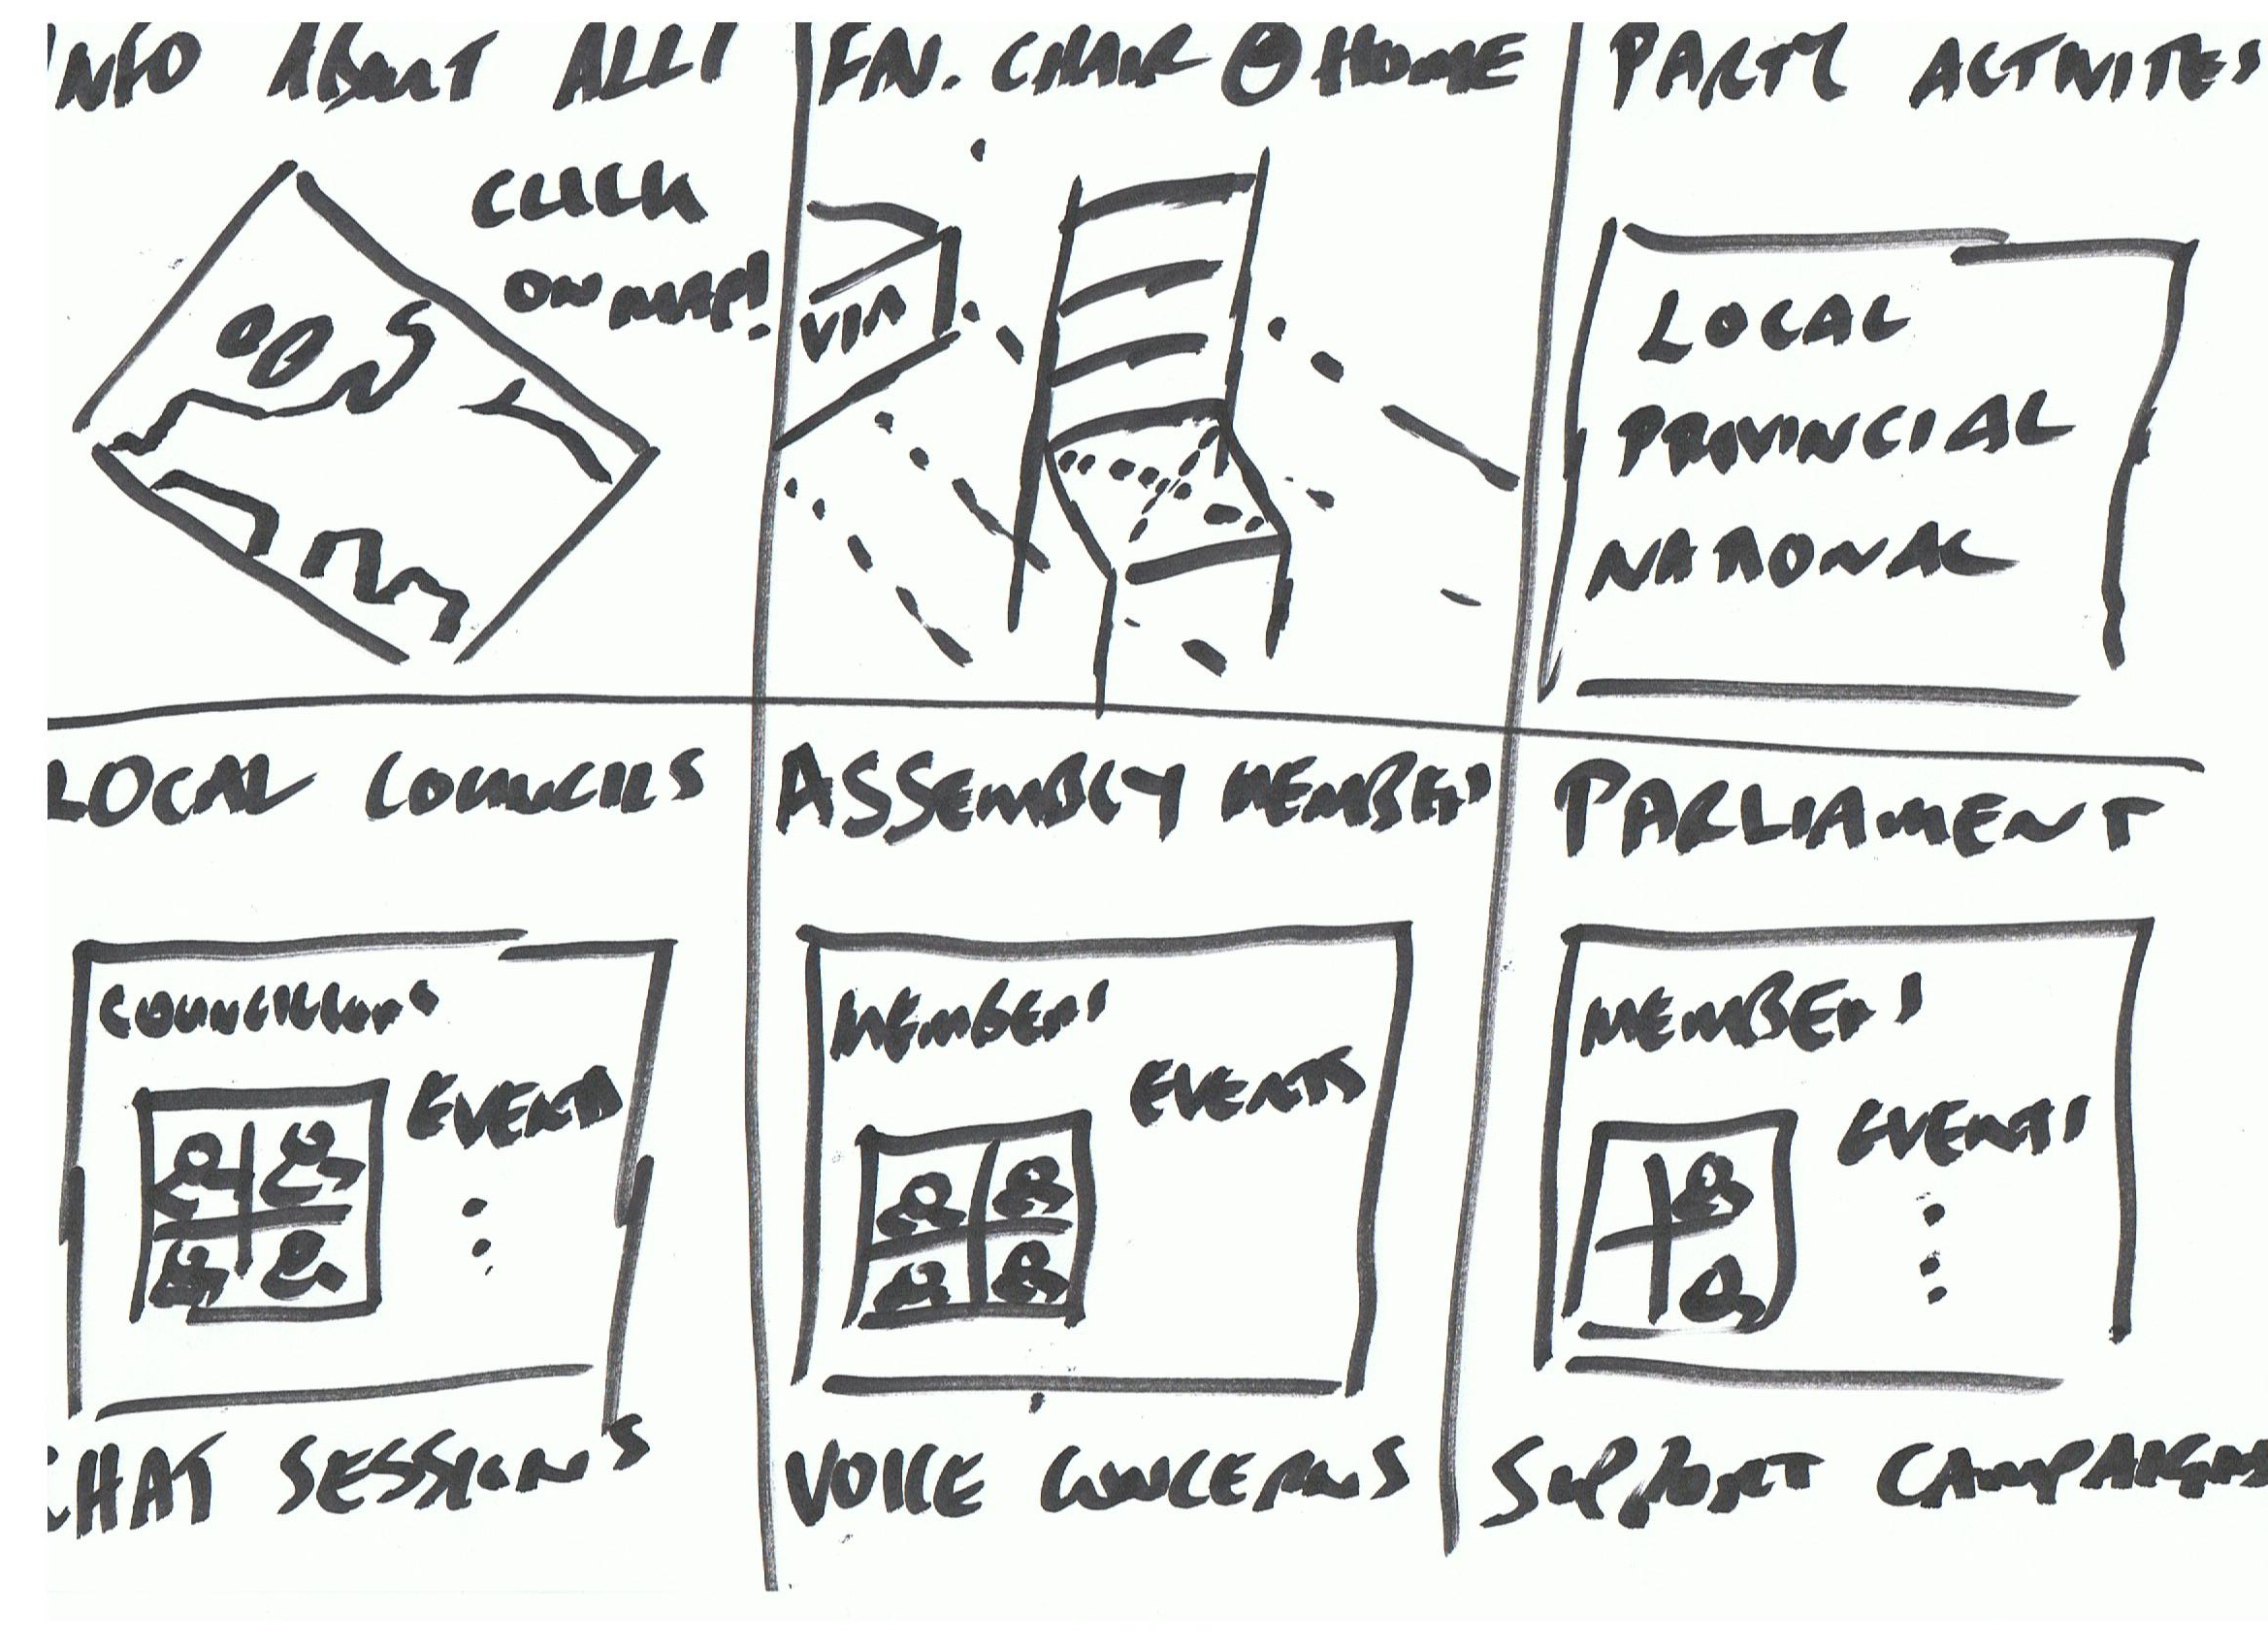 INFO ABOUT ALL!
CLICK
ON MAP!
FAV. CHAIR @ HOME
VIA
PARTY ACTIVITES
LOCAL
PROVINCIAL
NATIONAL
LOCAL COUNCILS
COUNCILLORS
EVENTS
CHAT SESSIONS
ASSEMBLY MEMBERS
MEMBERS
EVENTS
VOICE CONCERNS
PARLIAMENT
MEMBERS
EVENTS
SUPPORT CAMPAIGNS